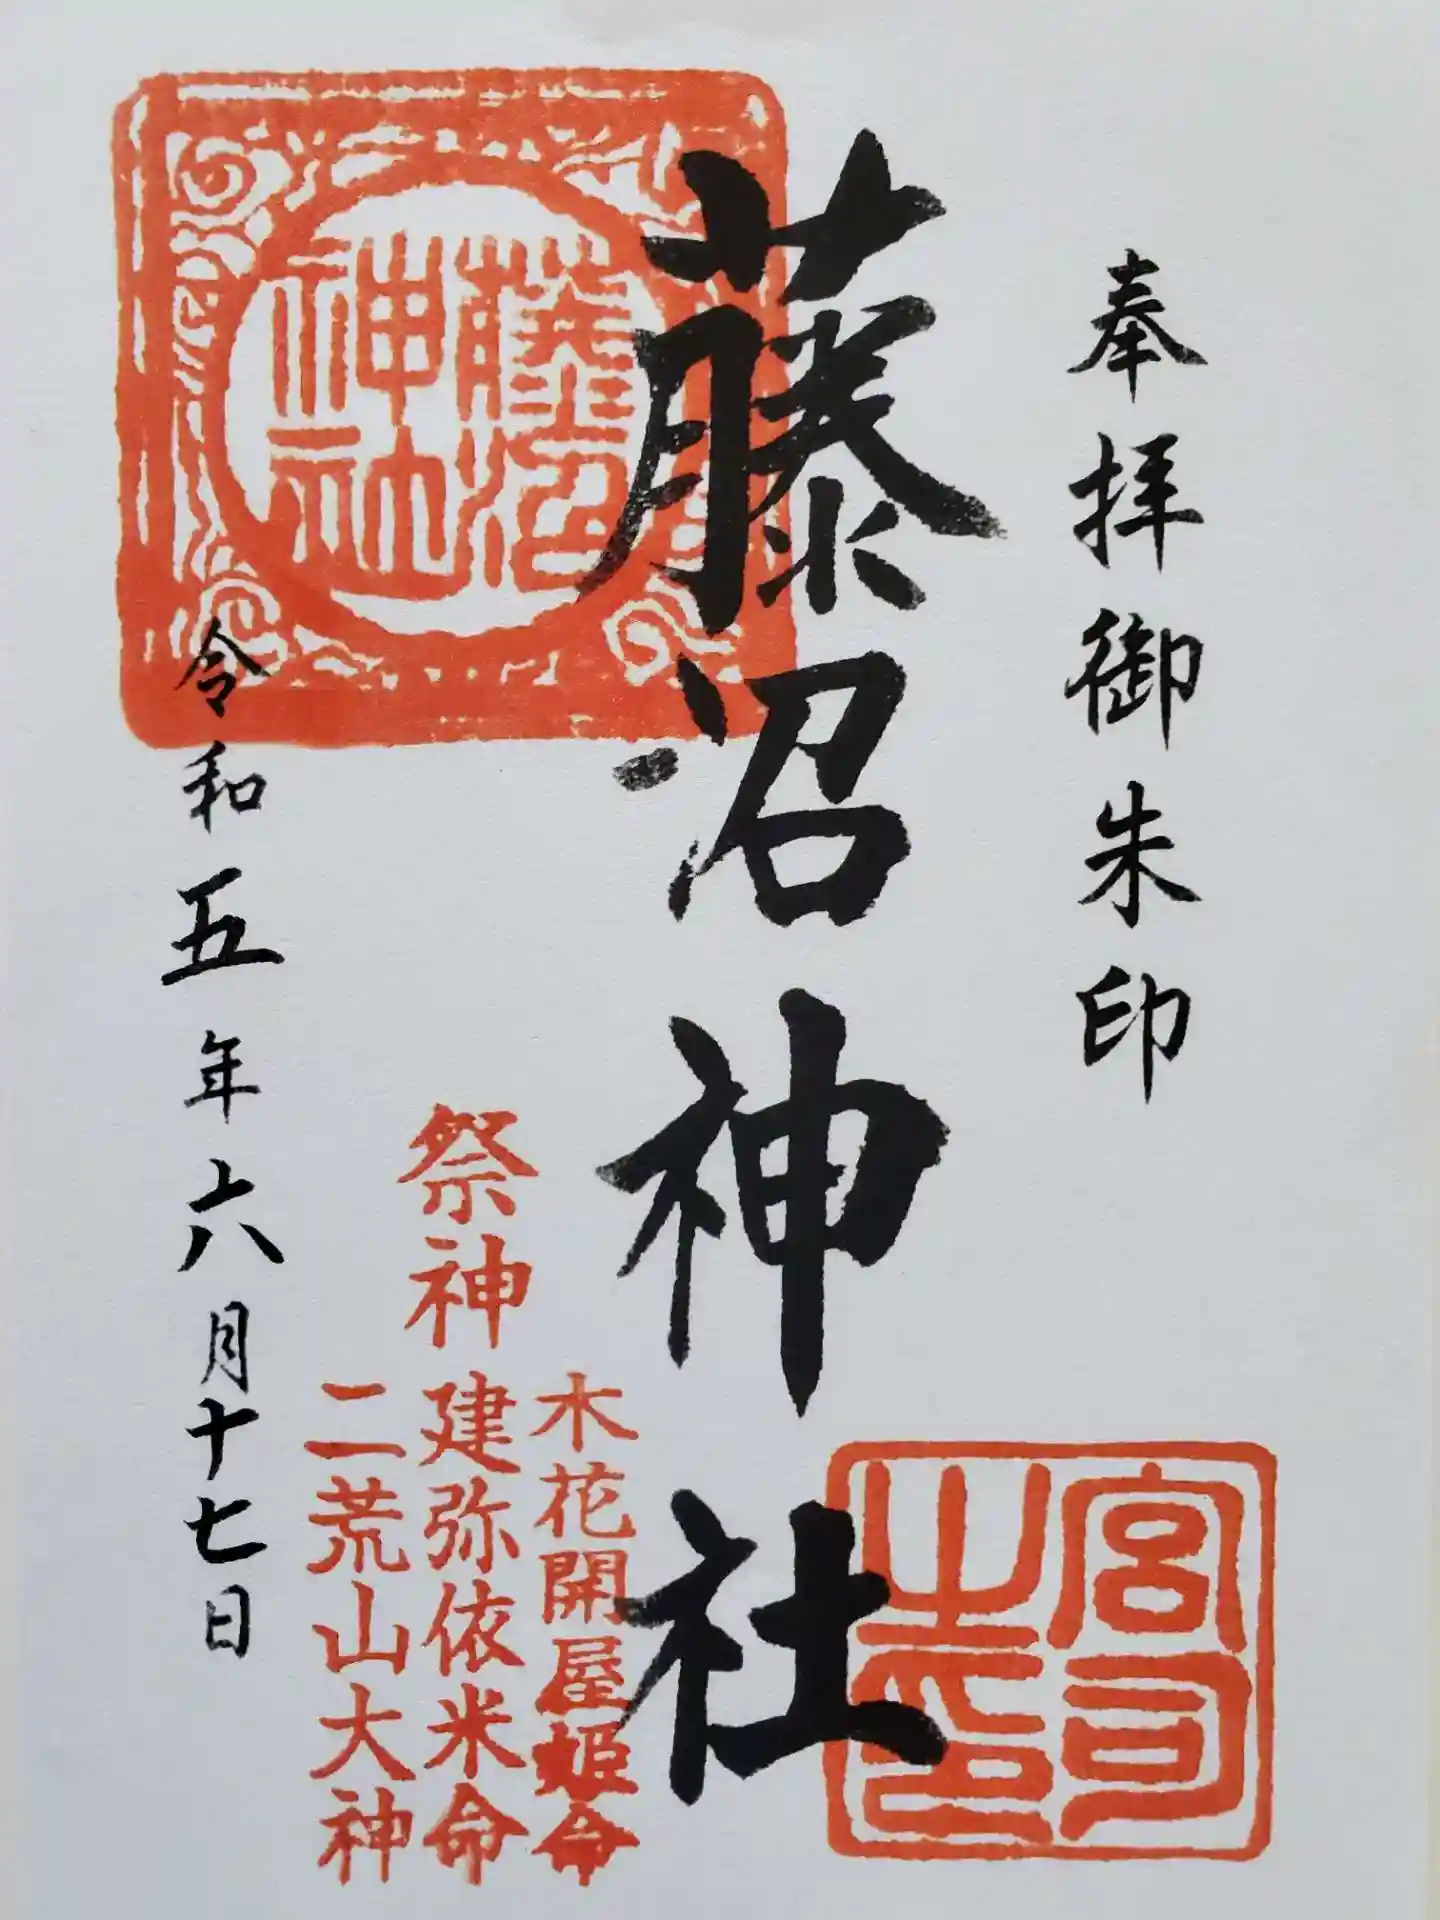 奉拝御朱印
藤沼神社
藤沼
神社
宮司
之印
祭神
木花開屋姫命
建弥依米命
二荒山大神
令和五年六月十七日